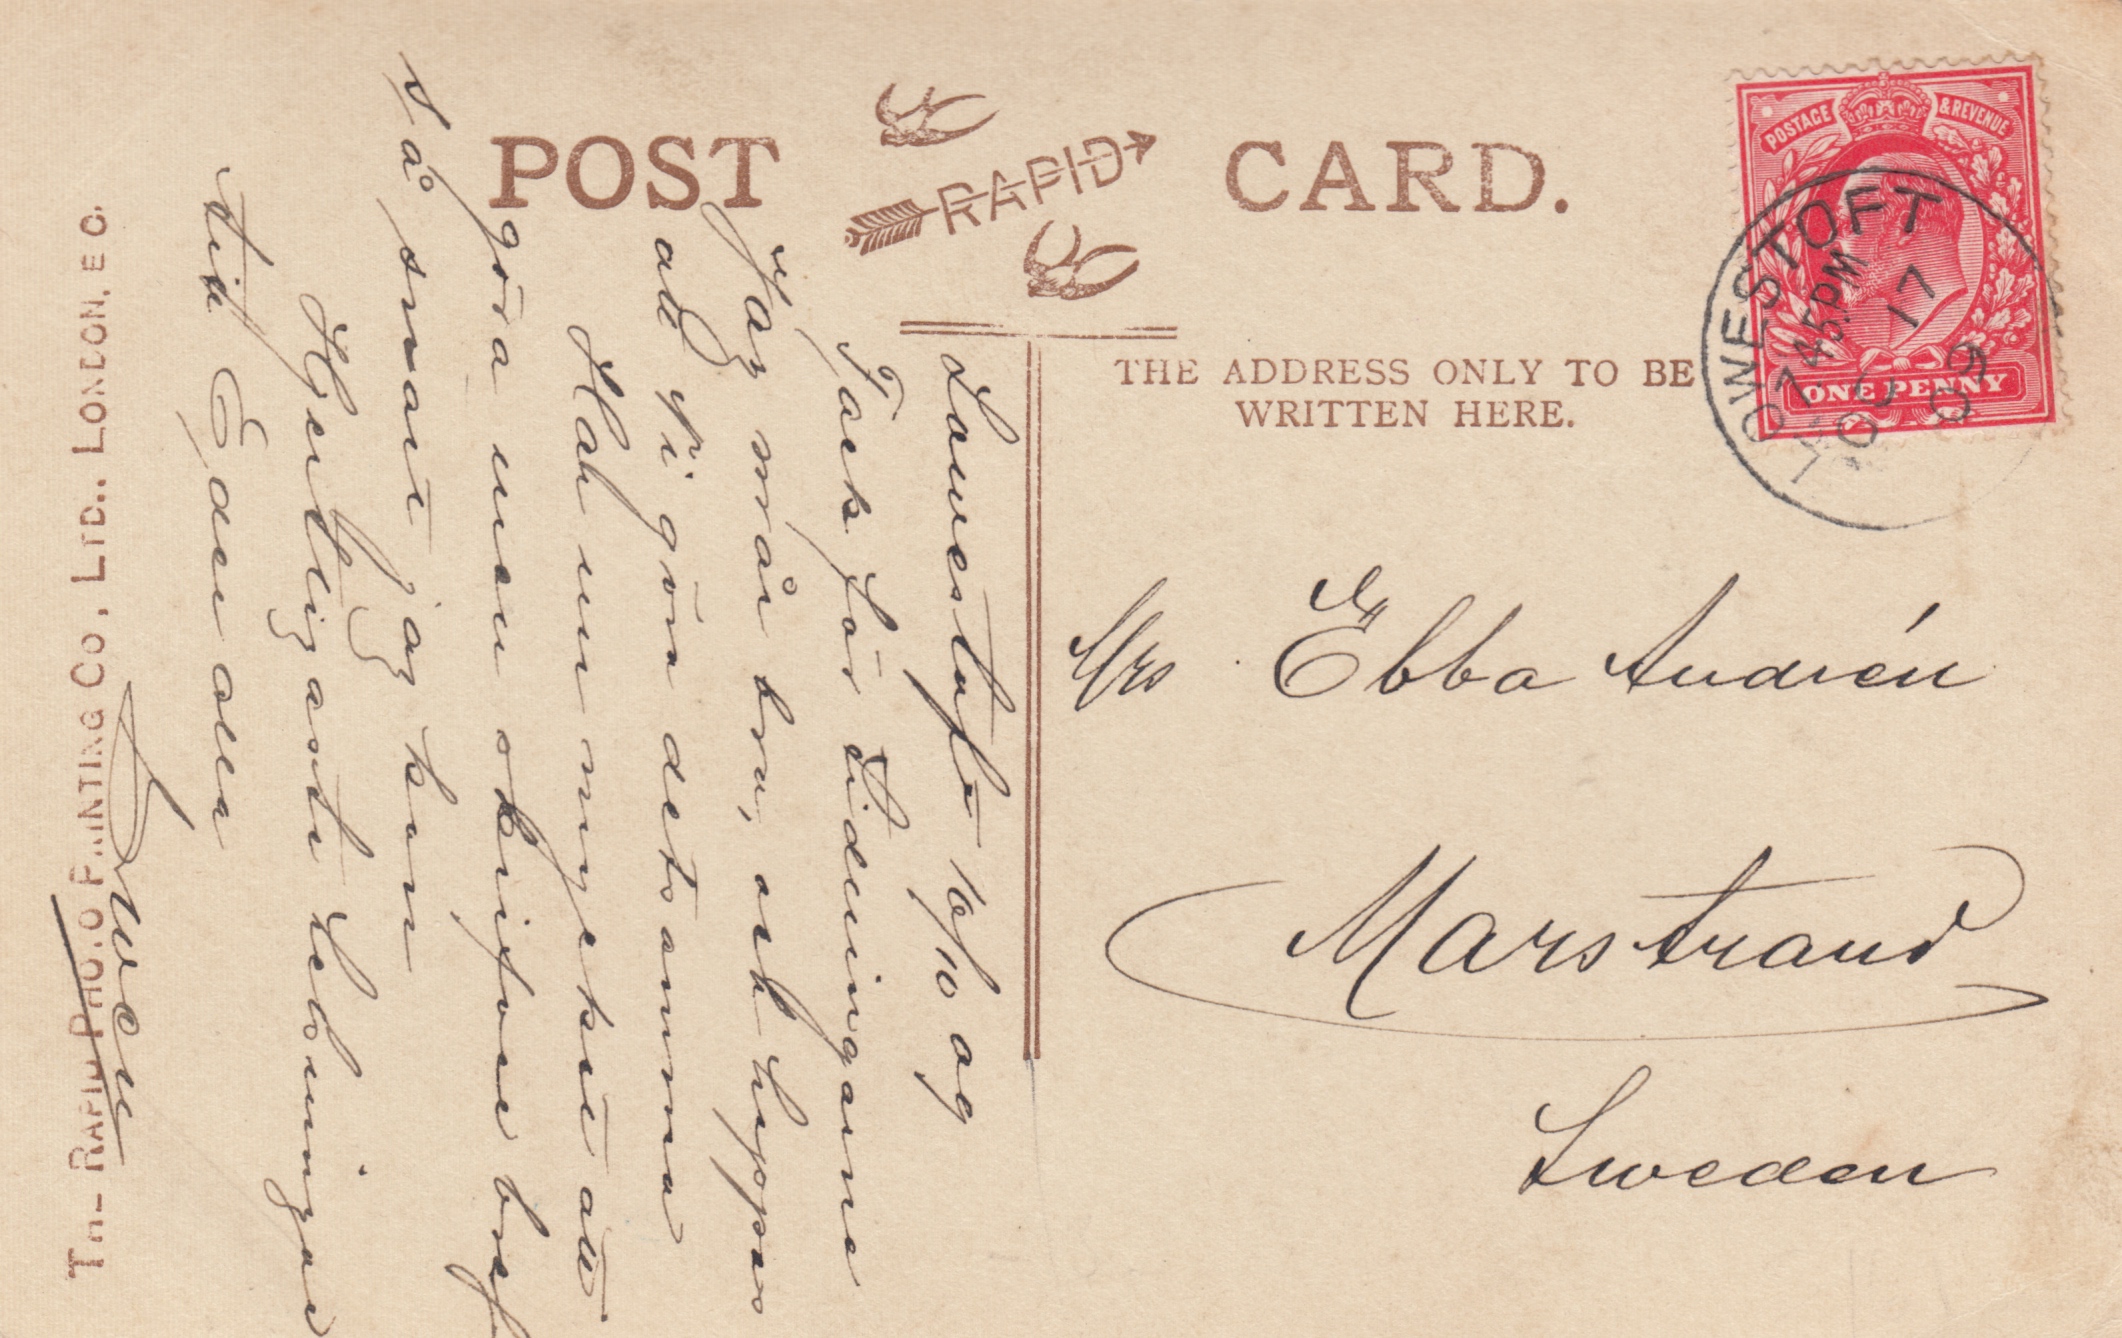 POST CARD.
RAPID
THE ADDRESS ONLY TO BE
WRITTEN HERE.
POSTAGE & REVENUE
ONE PENNY
LOWESTOFT
7.45.PM
OC 17
09
Mrs Ebba Andrén
Marstrand
Sweden
Lowestoft 16/10 09
Tack för tidningarne
Jag mår bra, och hoppas
att Ni göra detsamma
Har nu mycket att
göra men skrifver bref
så snart jag kan
Hjertligaste helsningar
till Eder alla
Swen
THE RAPID PHOTO PRINTING CO, LTD., LONDON. E C.